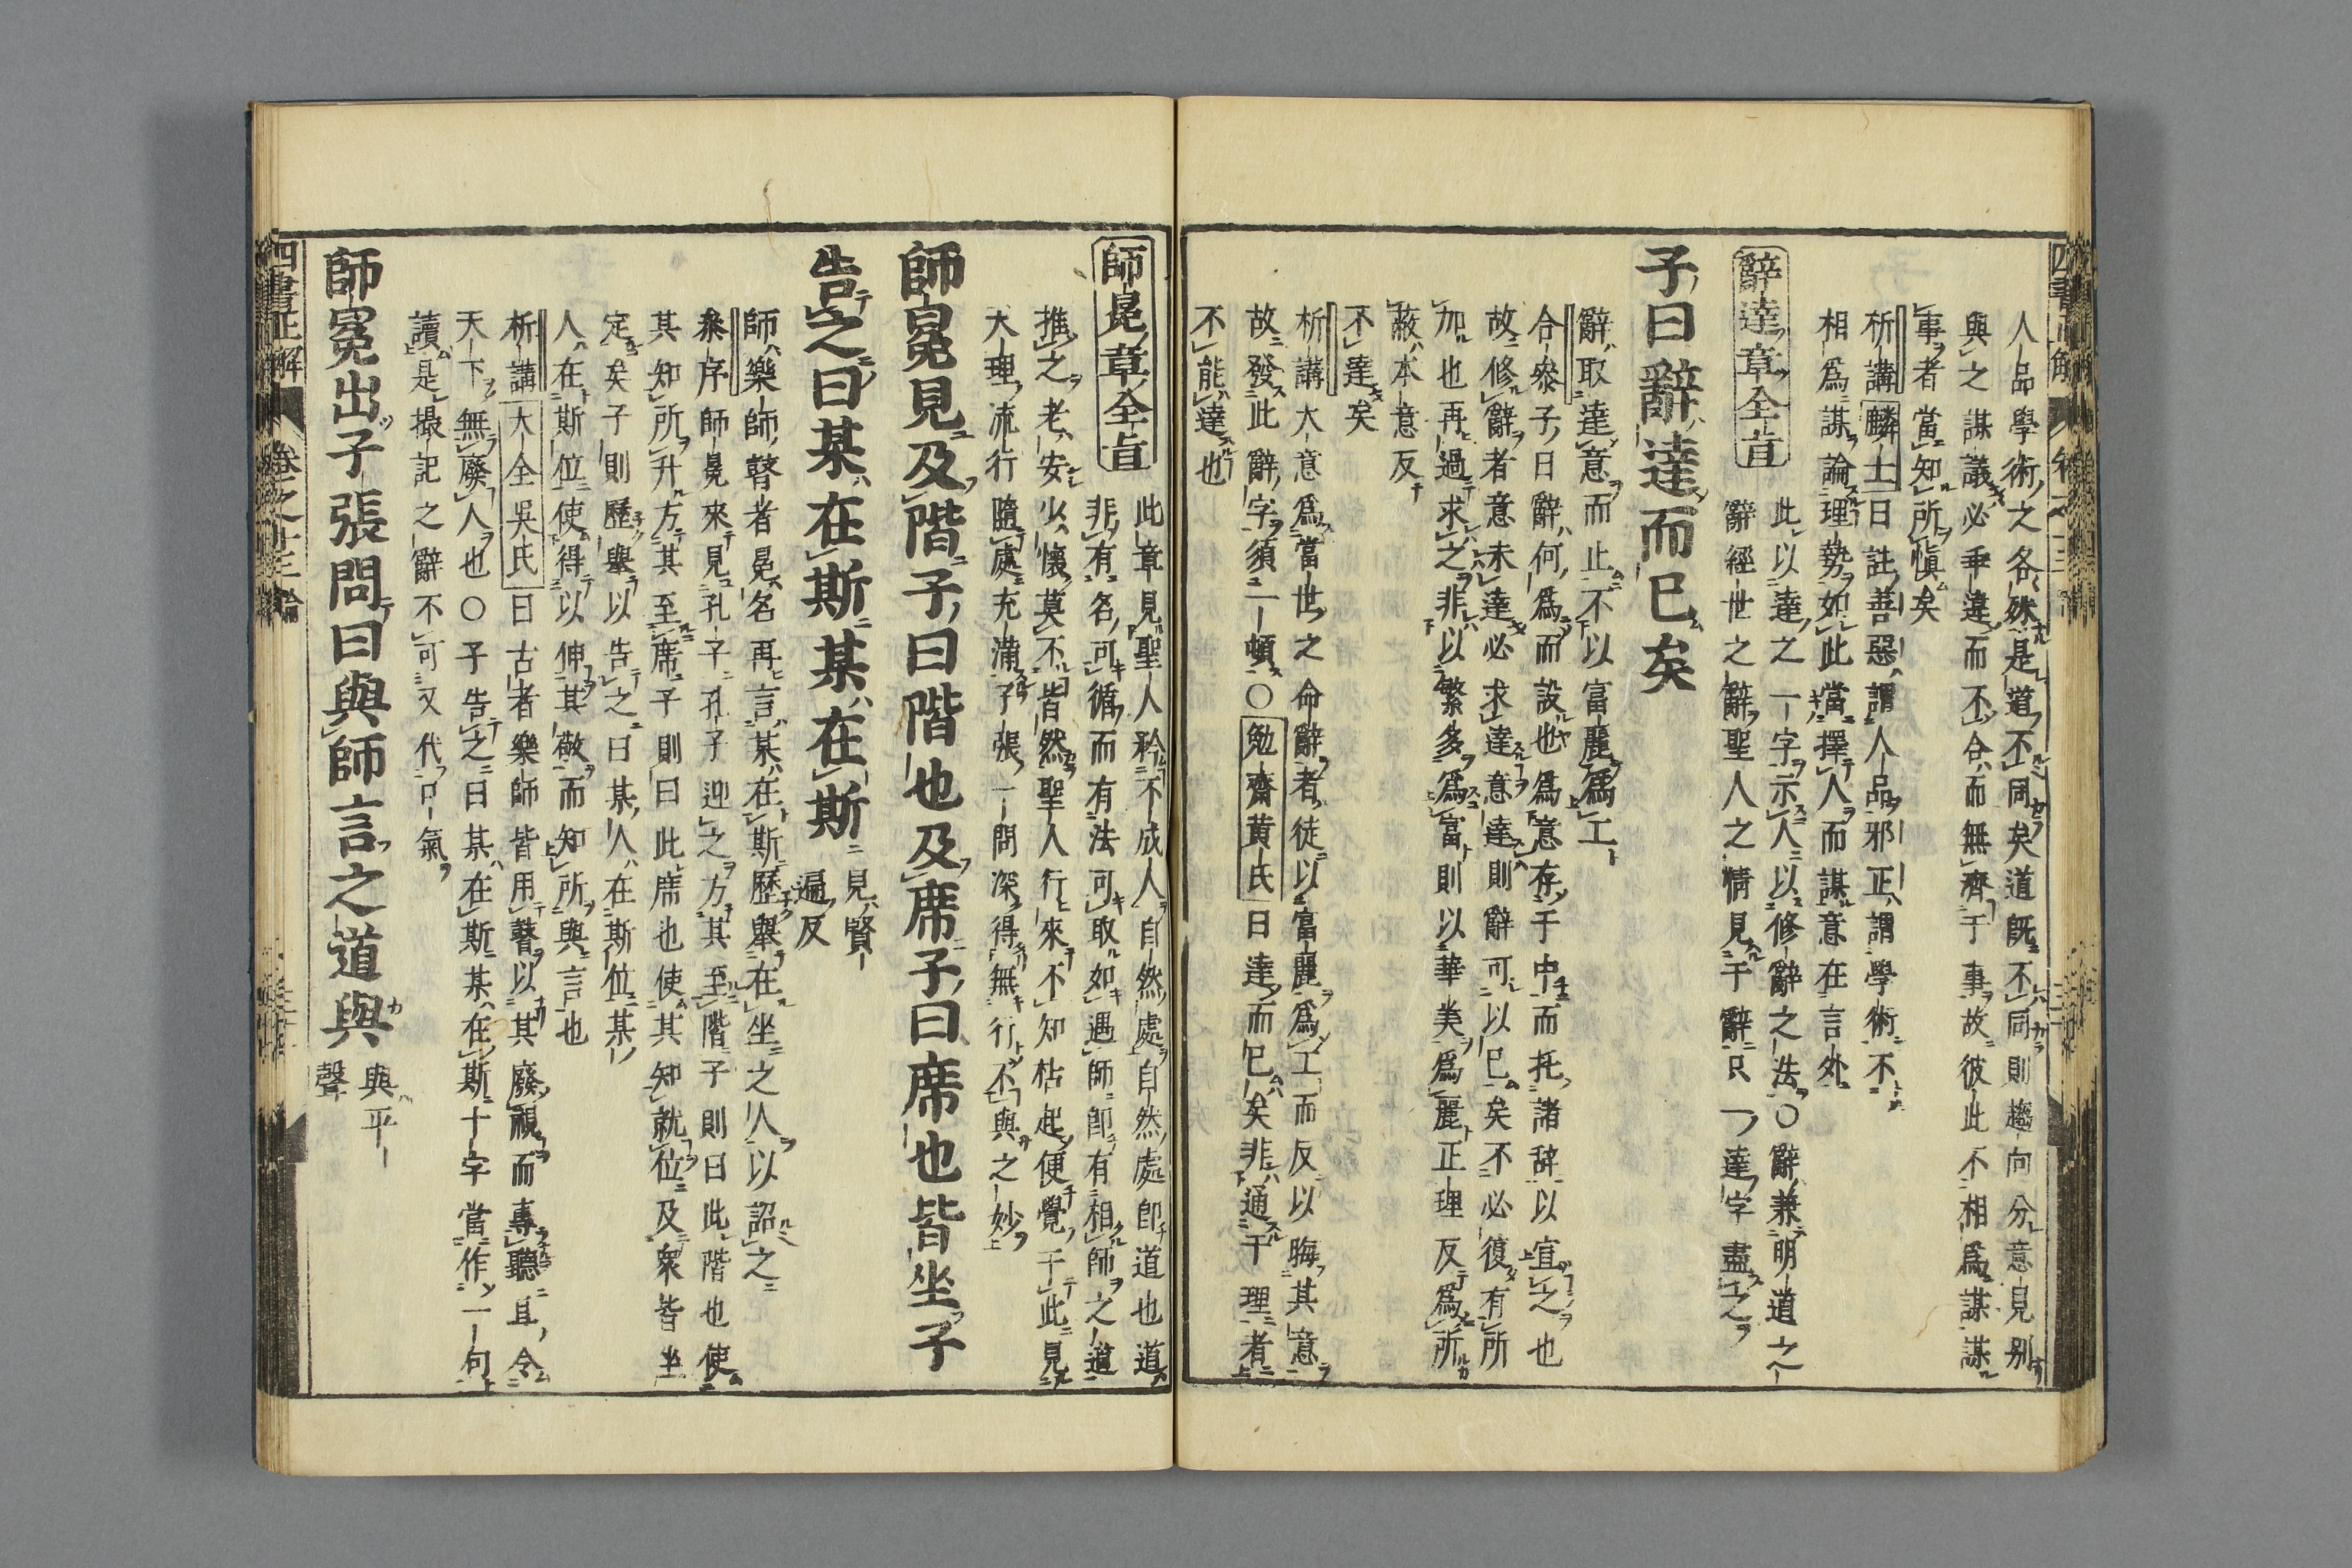 人品學術之各殊是道不同矣道既不同則趨向分意見別
與之謀議必乖違而不合而無濟于事故彼此不相爲謀謀
事者當知所愼矣
析講麟士曰註善惡謂人品邪正謂學術不
相爲謀論理勢如此當擇人而謀意在言外
辭達章全旨
此以達之一字示人以修辭之法○辭兼明道之
辭經世之辭聖人之情見于辭只一達字盡之
子曰辭達而已矣
辭取達意而止不以富麗爲工
合參子曰辭何爲而設也爲意存于中而托諸辞以宣之也
故修辭者意未達必求達意達則辭可以已矣不必復有所
加也再過求之非以繁多爲富則以華美爲麗正理反爲所
蔽本意反
不達矣
析講大意爲當世之命辭者徒以富麗爲工而反以晦其意
故發此辭字須一頓○勉齋黃氏曰達而已矣非通于理者
不能達也
師冕章全旨
此章見聖人矜不成人自然處自然處卽道也道
非有名可循而有法可取如遇師卽有相師之道
推之老安少懷莫不皆然聖人行來不知枯起便覺于此見
大理流行隨處充滿子張一問深得無行不與之妙
師冕見及階子曰階也及席子曰席也皆坐子
告之曰某在斯某在斯
見賢
遍反
師樂師瞽者冕名再言某在斯歷舉在坐之人以詔之
叅序師冕來見孔子孔子迎之方其至階子則曰此階也使
其知所升方其至席子則曰此席也使其知就位及衆皆坐
定矣子則歷舉以告之曰某人在斯位某
人在斯位使得以伸其敬而知所與言也
析講大全吳氏曰古者樂師皆用瞽以其廢視而專聽且令
天下無廢人也○子告之曰某在斯某在斯十字當作一句
讀是撮記之辭不可又代口氣
師冕出子張問曰與師言之道與
與平
聲
四書正解
卷之十三